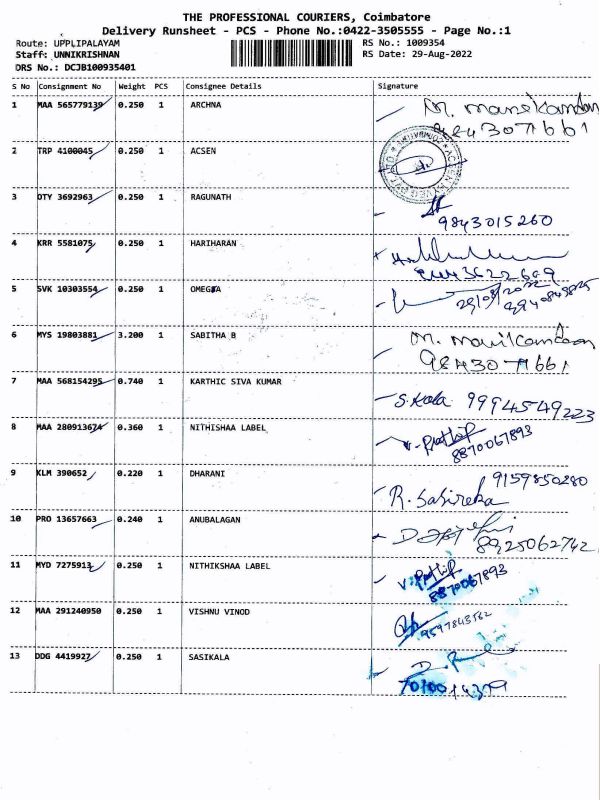 THE PROFESSIONAL COURIERS, Coimbatore
Delivery Runsheet - PCS - Phone No.:0422-3505555 - Page No.:1
Route: UPPLIPALAYAM RS No.: 1009354
Staff: UNNIKRISHNAN RS Date: 29-Aug-2022
DRS No.: DCJB100935401
S No Consignment No Weight PCS Consignee Details Signature
1 MAA 565779139 0.250 1 ARCHNA M. Manikandan
9843071661
2 TRP 4100045 0.250 1 ACSEN
3 OTY 3692963 0.250 1 RAGUNATH
9843015260
4 KRR 5581075 0.250 1 HARIHARAN
5 SVK 10303554 0.250 1 OMEGA
29/08/2022
6 MYS 19803881 3.200 1 SABITHA B M. Manikandan
9843071661
7 MAA 568154295 0.740 1 KARTHIC SIVA KUMAR S. Kala 9994549223
8 MAA 280913674 0.360 1 NITHISHAA LABEL V. Prathip
8870067893
9 KLM 390652 0.220 1 DHARANI 9159850280
R. Sasireka
10 PRO 13657663 0.240 1 ANUBALAGAN
8925062742
11 MYD 7275913 0.250 1 NITHIKSHAA LABEL V. Prathip
8870067893
12 MAA 291240950 0.250 1 VISHNU VINOD
9597843562
13 DDG 4419927 0.250 1 SASIKALA